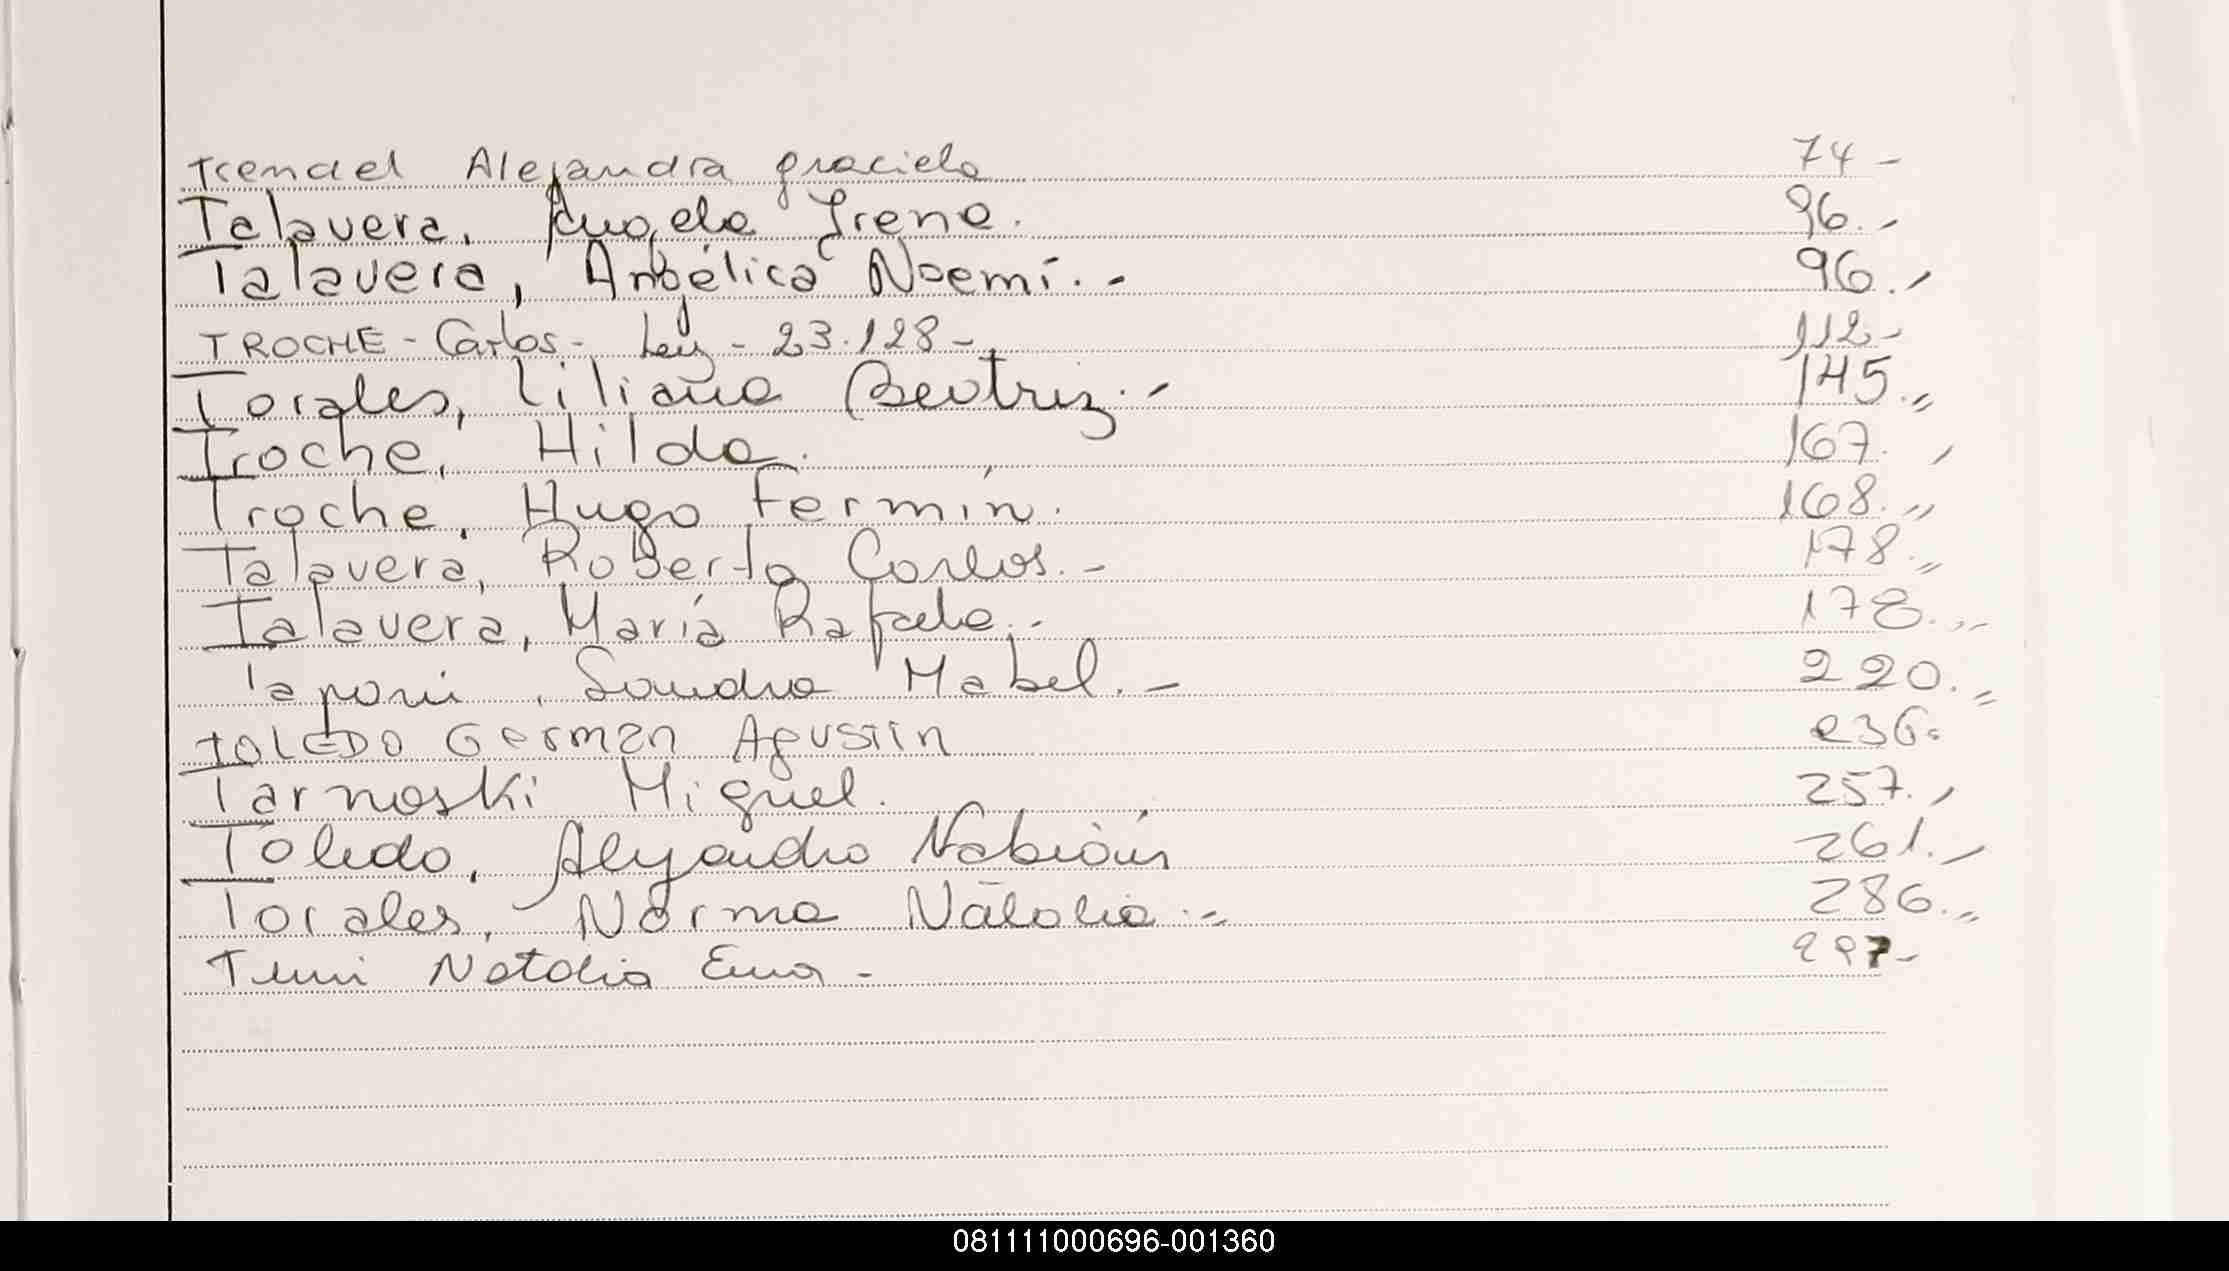 Trendel Alejandra graciela 74-
Talavera, Angela Irene. 96.-
Talavera, Angélica Noemí.- 96.-
TROCHE - Carlos - Ley - 23.128 - 112-
Torales, Liliana Beatriz.- 145.,,
Troche, Hilda. 167.-
Troche, Hugo Fermín. 168.,,
Talavera, Roberto Carlos.- 178.,,
Talavera, María Rafaela.- 178.,,
Taponi, Sandra Mabel.- 220.,,
TOLEDO German Agustin 236.
Tarnoski Miguel. 257.-
Toledo, Alejandro 261.-
Torales, Norma Natalia.- 286.,,
Natalia Ema - 297-
081111000696-001360